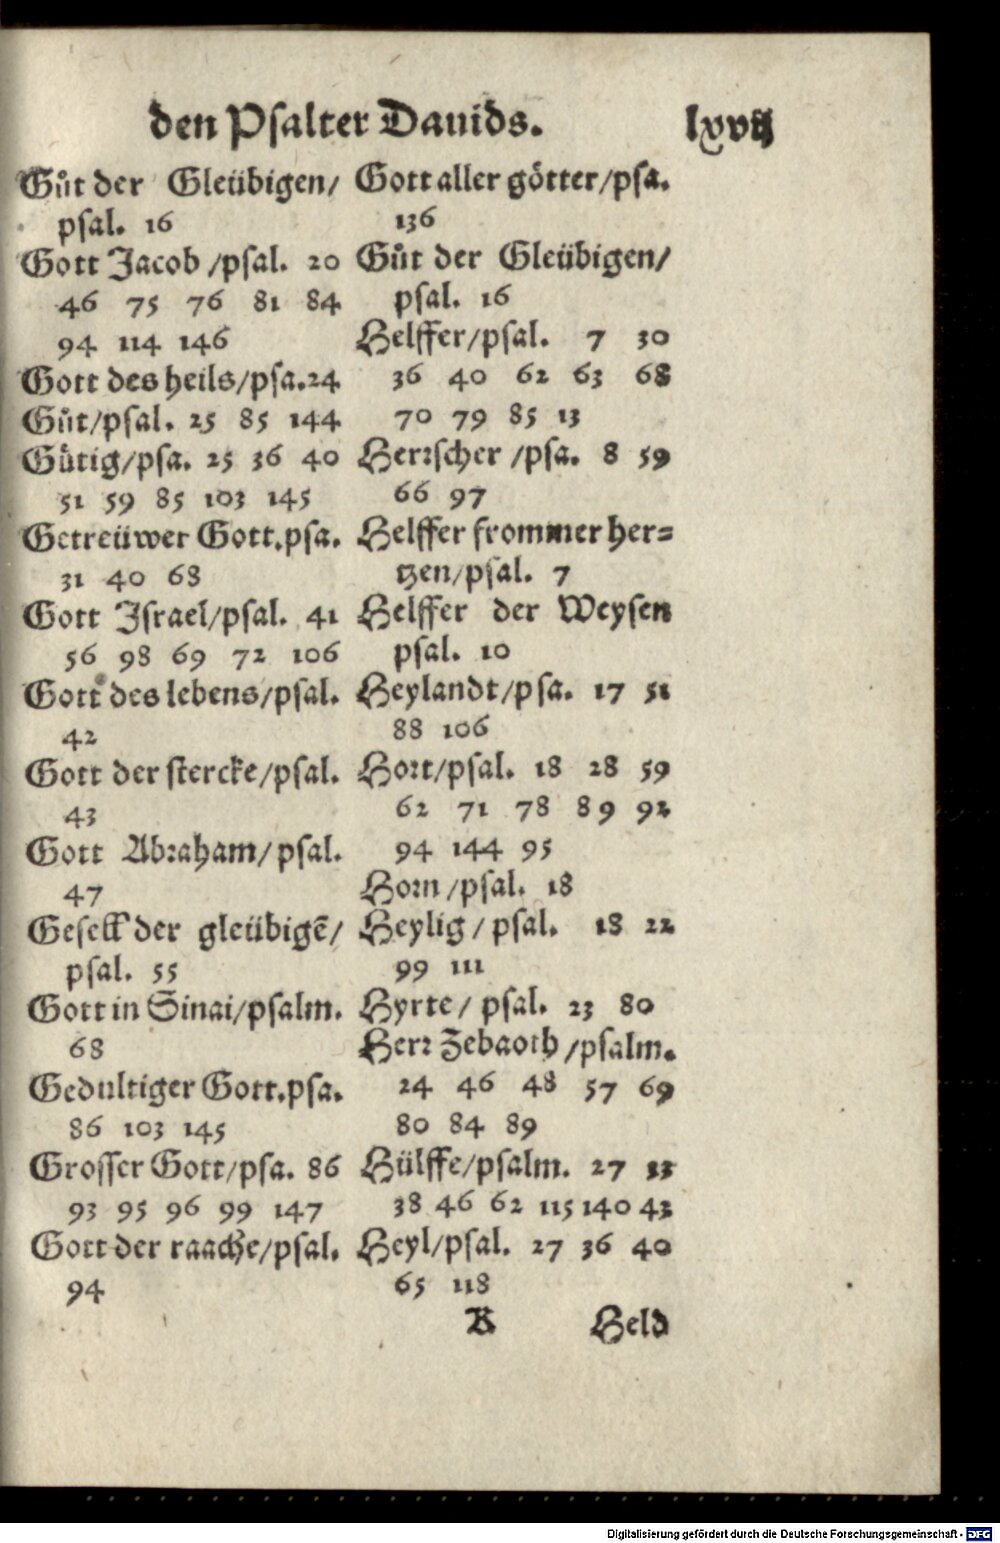 den Psalter Dauids. lxvij
Gůt der Gleübigen/
psal. 16
Gott Jacob/psal. 20
46 75 76 81 84
94 114 146
Gott des heils/psa.24
Gůt/psal. 25 85 144
Gůtig/psa. 25 36 40
51 59 85 103 145
Getreüwer Gott.psa.
31 40 68
Gott Israel/psal. 41
56 98 69 72 106
Gott des lebens/psal.
42
Gott der stercke/psal.
43
Gott Abraham/psal.
47
Gesell der gleübigē/
psal. 55
Gott in Sinai/psalm.
68
Gedultiger Gott.psa.
86 103 145
Grosser Gott/psa. 86
93 95 96 99 147
Gott der raache/psal.
94
Gott aller götter/psa.
136
Gůt der Gleübigen/
psal. 16
Helffer/psal. 7 30
36 40 62 63 68
70 79 85 13
Herrscher/psa. 8 59
66 97
Helffer frommer her=
tzen/psal. 7
Helffer der Weysen
psal. 10
Heylandt/psa. 17 51
88 106
Hort/psal. 18 28 59
62 71 78 89 92
94 144 95
Horn/psal. 18
Heylig/psal. 18 22
99 111
Hyrte/psal. 23 80
Herr Zebaoth/psalm.
24 46 48 57 69
80 84 89
Hülffe/psalm. 27 33
38 46 62 115 140 42
Heyl/psal. 27 36 40
65 118
K Held
Digitalisierung gefördert durch die Deutsche Forschungsgemeinschaft - DFG